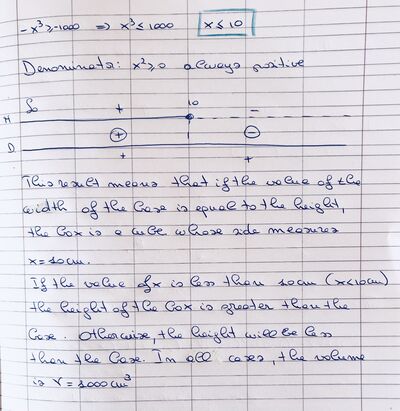 -x³≥-1000 => x³≤1000 x≤10
Denominator: x²≥0 always positive
So + 10 -
N
+ -
D + +
This result means that if the value of the
width of the base is equal to the height,
the box is a cube whose side measures
x=10cm.
If the value of x is less than 10cm (x<10cm)
the height of the box is greater than the
base. Otherwise, the height will be less
than the base. In all cases, the volume
is V = 1000 cm³